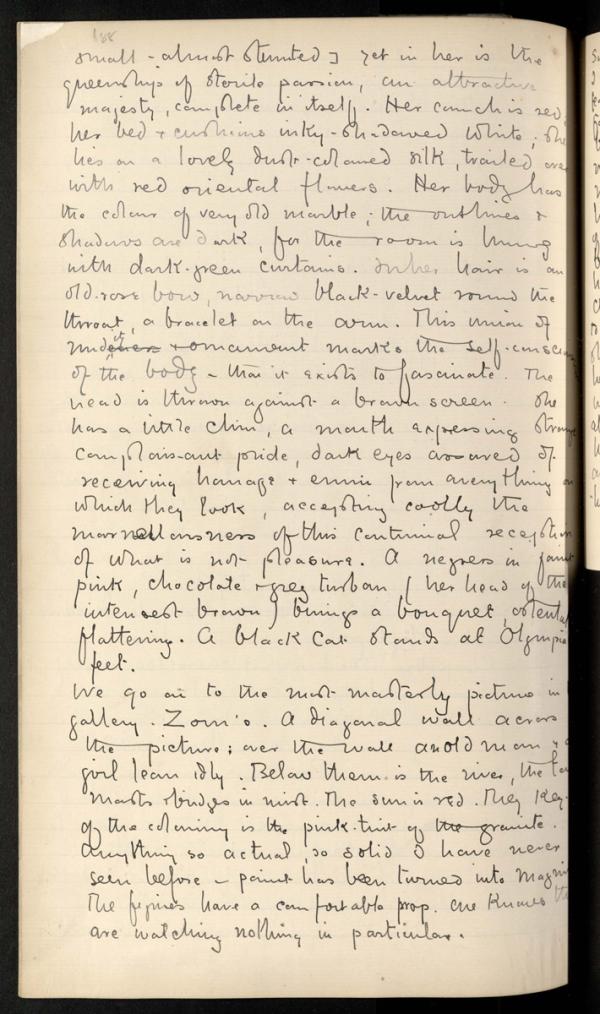 188
small - almost stunted] yet in her is the
queenship of sterile passion, an attractive
majesty, complete in itself. Her couch is red,
her bed & cushions inky-shadowed white; she
lies on a lovely dust-coloured silk, trailed over
with red oriental flowers. Her body has
the colour of very old marble; the outlines &
shadows are dark, for the room is hung
with dark-green curtains. In her hair is an
old-rose bow, narrow black-velvet round the
throat, a bracelet on the arm. This union of
nudity & ornament marks the self-conscious
of the body - that it exists to fascinate. The
head is thrown against a brown screen. She
has a little chin, a mouth expressing strange
complais-ant pride, dark eyes assured of
receiving homage & ennui from everything on
which they look, accepting coolly the
marvellousness of this continual reception
of what is not pleasure. A negress in faint
pink, chocolate & grey turban (her head of the
intensest brown) brings a bouquet,
flattering. A black cat stands at Olympia
feet.
We go on to the most masterly picture in
gallery - Zorn's. A diagonal wall across
the picture; over the wall an old man &
girl lean idly. Below them is the river, the
masts & bridges in mist. The sun is red. The key
of the colouring is the pink-tint of the granite.
Anything so actual, so solid I have never
seen before - paint has been turned into
The figures have a comfortable prop. One knows
are watching nothing in particular.